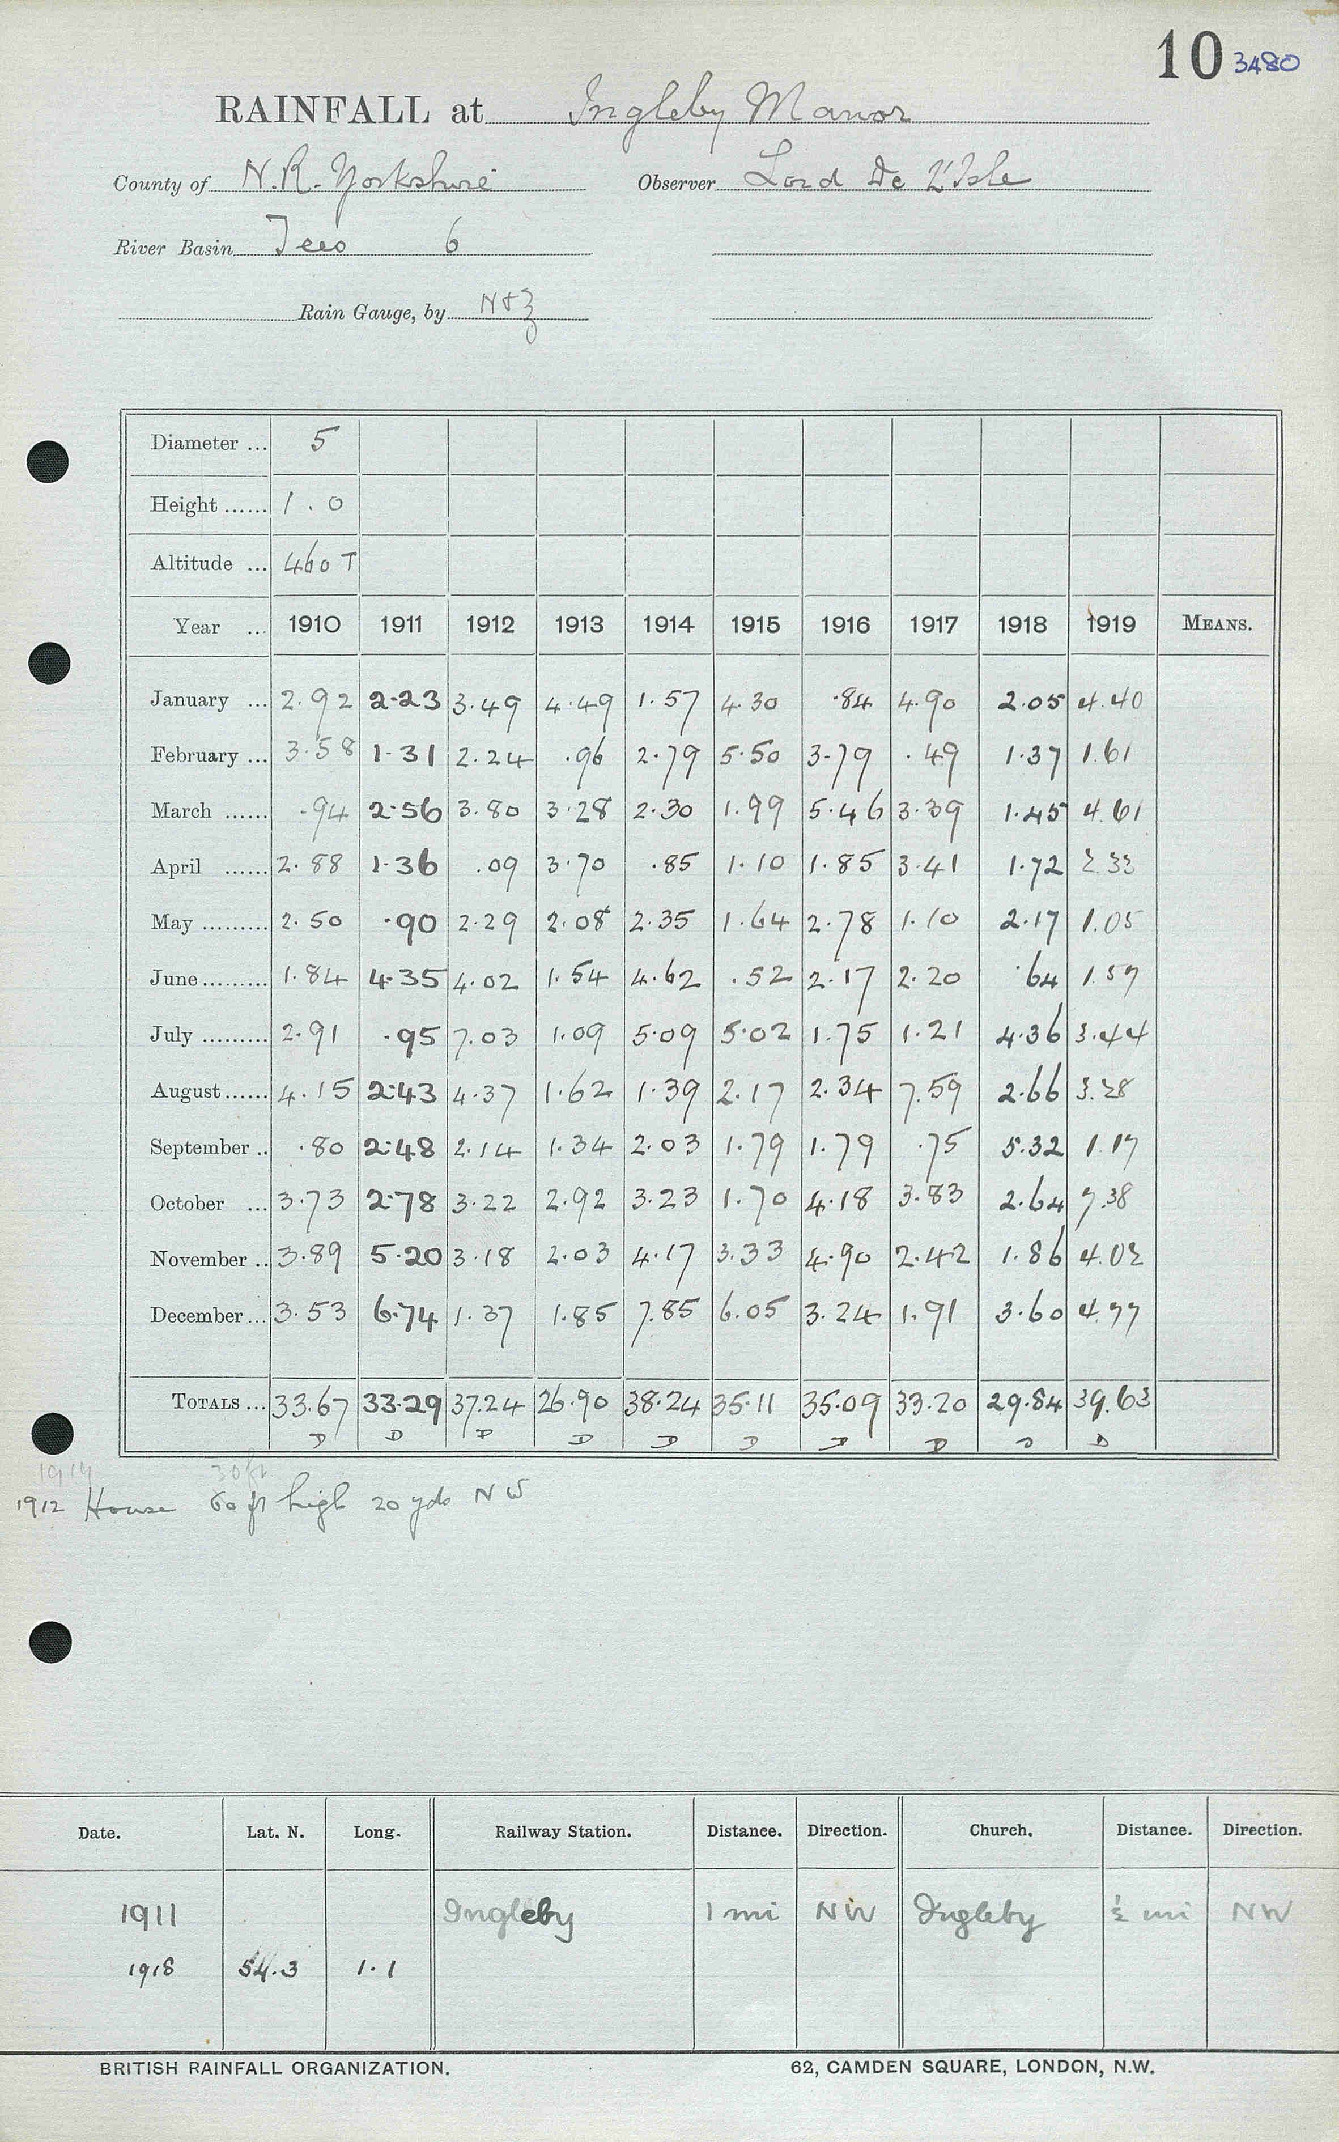 10 3480
RAINFALL at Ingleby Manor
County of N.R. Yorkshire Observer Lord De L'Isle
River Basin Tees 6
Rain Gauge, by N+Z
Diameter ... 5
Height ...... 1.0
Altitude ... 460 T
Year ... 1910 1911 1912 1913 1914 1915 1916 1917 1918 1919 MEANS.
January ... 2.92 2.23 3.49 4.49 1.57 4.30 .84 4.90 2.05 4.40
February ... 3.58 1.31 2.24 .96 2.79 5.50 3.79 .49 1.37 1.61
March ...... .94 2.56 3.80 3.28 2.30 1.99 5.46 3.39 1.45 4.61
April ...... 2.88 1.36 .09 3.70 .85 1.10 1.85 3.41 1.72 2.33
May ......... 2.50 .90 2.29 2.08 2.35 1.64 2.78 1.10 2.17 1.05
June ......... 1.84 4.35 4.02 1.54 4.62 .52 2.17 2.20 .64 1.57
July ......... 2.91 .95 7.03 1.09 5.09 5.02 1.75 1.21 4.36 3.44
August ...... 4.15 2.43 4.37 1.62 1.39 2.17 2.34 7.59 2.66 3.28
September .. .80 2.48 2.14 1.34 2.03 1.79 1.79 .75 5.32 1.17
October ... 3.73 2.78 3.22 2.92 3.23 1.70 4.18 3.83 2.64 7.38
November .. 3.89 5.20 3.18 2.03 4.17 3.33 4.90 2.42 1.86 4.02
December ... 3.53 6.74 1.37 1.85 7.85 6.05 3.24 1.91 3.60 4.77
TOTALS ... 33.67 33.29 37.24 26.90 38.24 35.11 35.09 33.20 29.84 39.63
D D D D D D D D D D
1914 30 ft
1912 House 60 ft high 20 yds NW
Date. Lat. N. Long. Railway Station. Distance. Direction. Church. Distance. Direction.
1911 Ingleby 1 mi NW Ingleby ½ mi NW
1918 54.3 1.1
BRITISH RAINFALL ORGANIZATION. 62, CAMDEN SQUARE, LONDON, N.W.